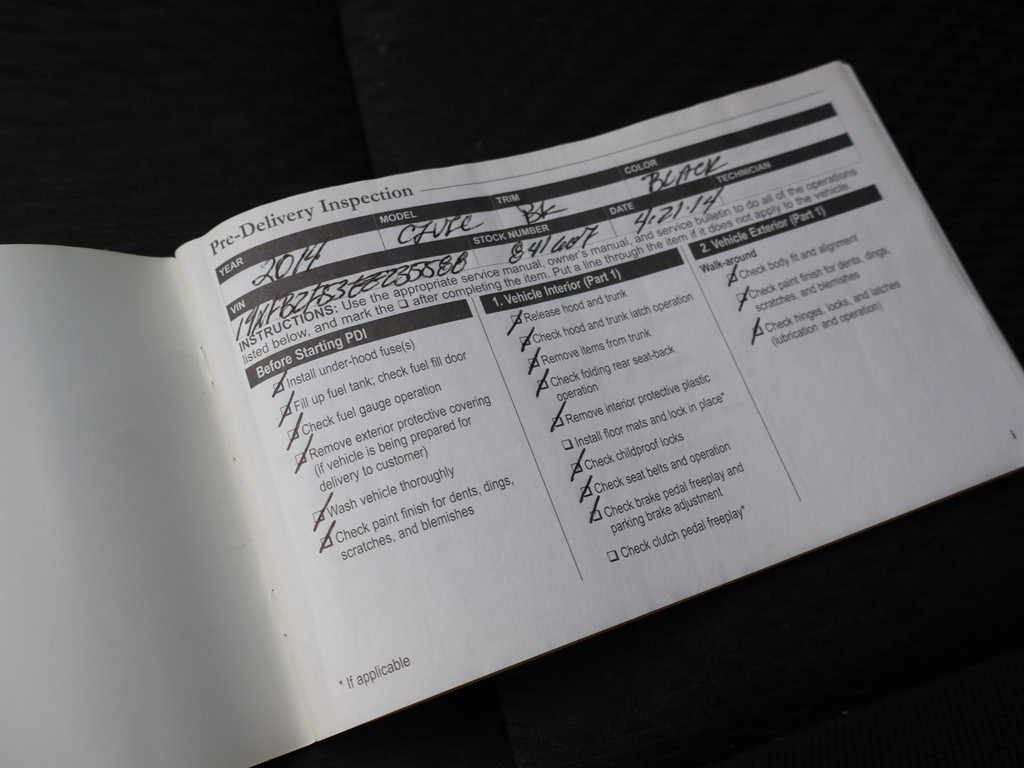 Pre-Delivery Inspection
YEAR MODEL TRIM COLOR
2014 CIVIC BK BLACK
VIN STOCK NUMBER DATE TECHNICIAN
4·21·14
INSTRUCTIONS: Use the appropriate service manual, owner's manual, and service bulletin to do all of the operations
listed below, and mark the ❑ after completing the item. Put a line through the item if it does not apply to the vehicle.
Before Starting PDI
Install under-hood fuse(s)
Fill up fuel tank; check fuel fill door
Check fuel gauge operation
Remove exterior protective covering
(if vehicle is being prepared for
delivery to customer)
Wash vehicle thoroughly
Check paint finish for dents, dings,
scratches, and blemishes
1. Vehicle Interior (Part 1)
Release hood and trunk
Check hood and trunk latch operation
Remove items from trunk
Check folding rear seat-back
operation
Remove interior protective plastic
❑ Install floor mats and lock in place*
Check childproof locks
Check seat belts and operation
Check brake pedal freeplay and
parking brake adjustment
❑ Check clutch pedal freeplay*
2. Vehicle Exterior (Part 1)
Walk-around
Check body fit and alignment
Check paint finish for dents, dings,
scratches, and blemishes
Check hinges, locks, and latches
(lubrication and operation)
* If applicable